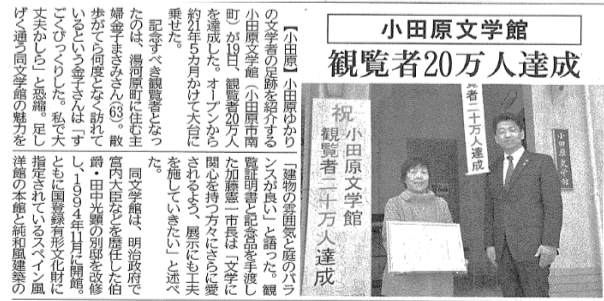 小田原文学館
観覧者20万人達成
【小田原】小田原ゆかり
の文学者の足跡を紹介する
小田原文学館（小田原市南
町）が19日、観覧者20万人
を達成した。オープンから
約14年5カ月かけて大台に
乗せた。
記念すべき観覧者となっ
たのは、湯河原町に住む主
婦金子まさみさん（63）。散
歩がてら何度となく訪れて
いるという金子さんは「す
ごくびっくりした。私で大
丈夫かしら」と恐縮。足し
げく通う同文学館の魅力を
「建物の雰囲気と庭のバラ
ンスが良い」と語った。観
覧証明書と記念品を手渡し
た加藤憲一市長は「文学に
関心を持つ方々にさらに愛
されるよう、展示にも工夫
を施していきたい」と述べ
た。
同文学館は、明治政府で
宮内大臣などを歴任した伯
爵・田中光顕の別邸を改修
し、1994年11月に開館。
ともに国登録有形文化財に
指定されているスペイン風
洋館の本館と純和風建築の
小田原文学館
覧者二十万人達成
祝
小田原文学館
観覧者二十万人達成